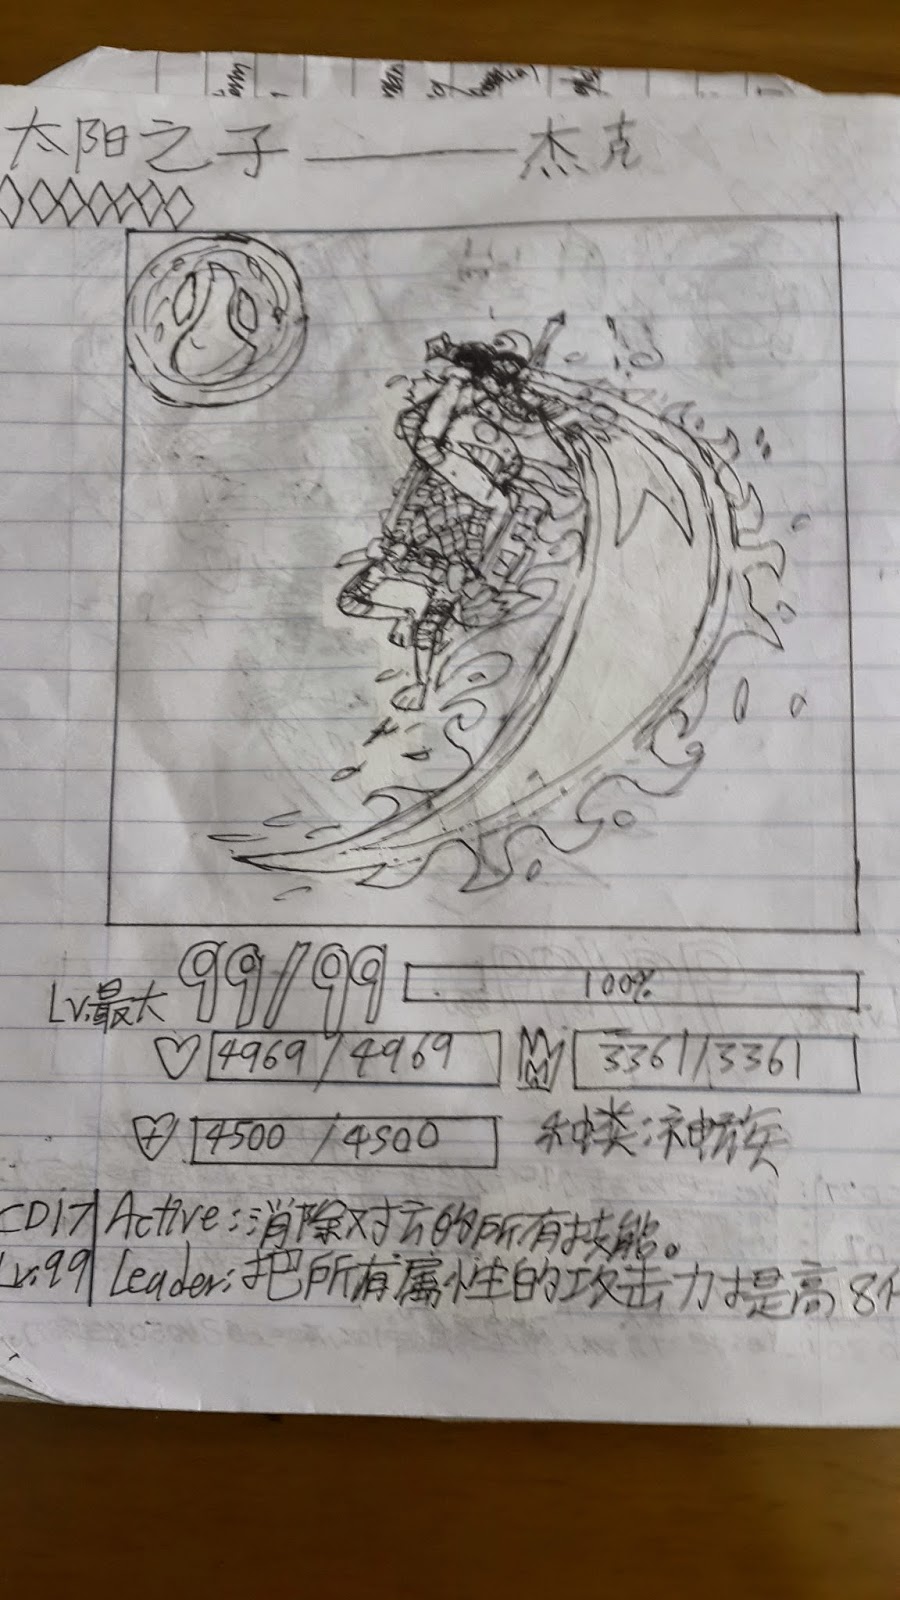 太阳之子——杰克
Lv.最大 99/99 100%
4969/4969 3361/3361
4500/4500 种类:神族
CD17 Active:消除对方的所有技能。
Lv.99 Leader:把所有属性的攻击力提高8